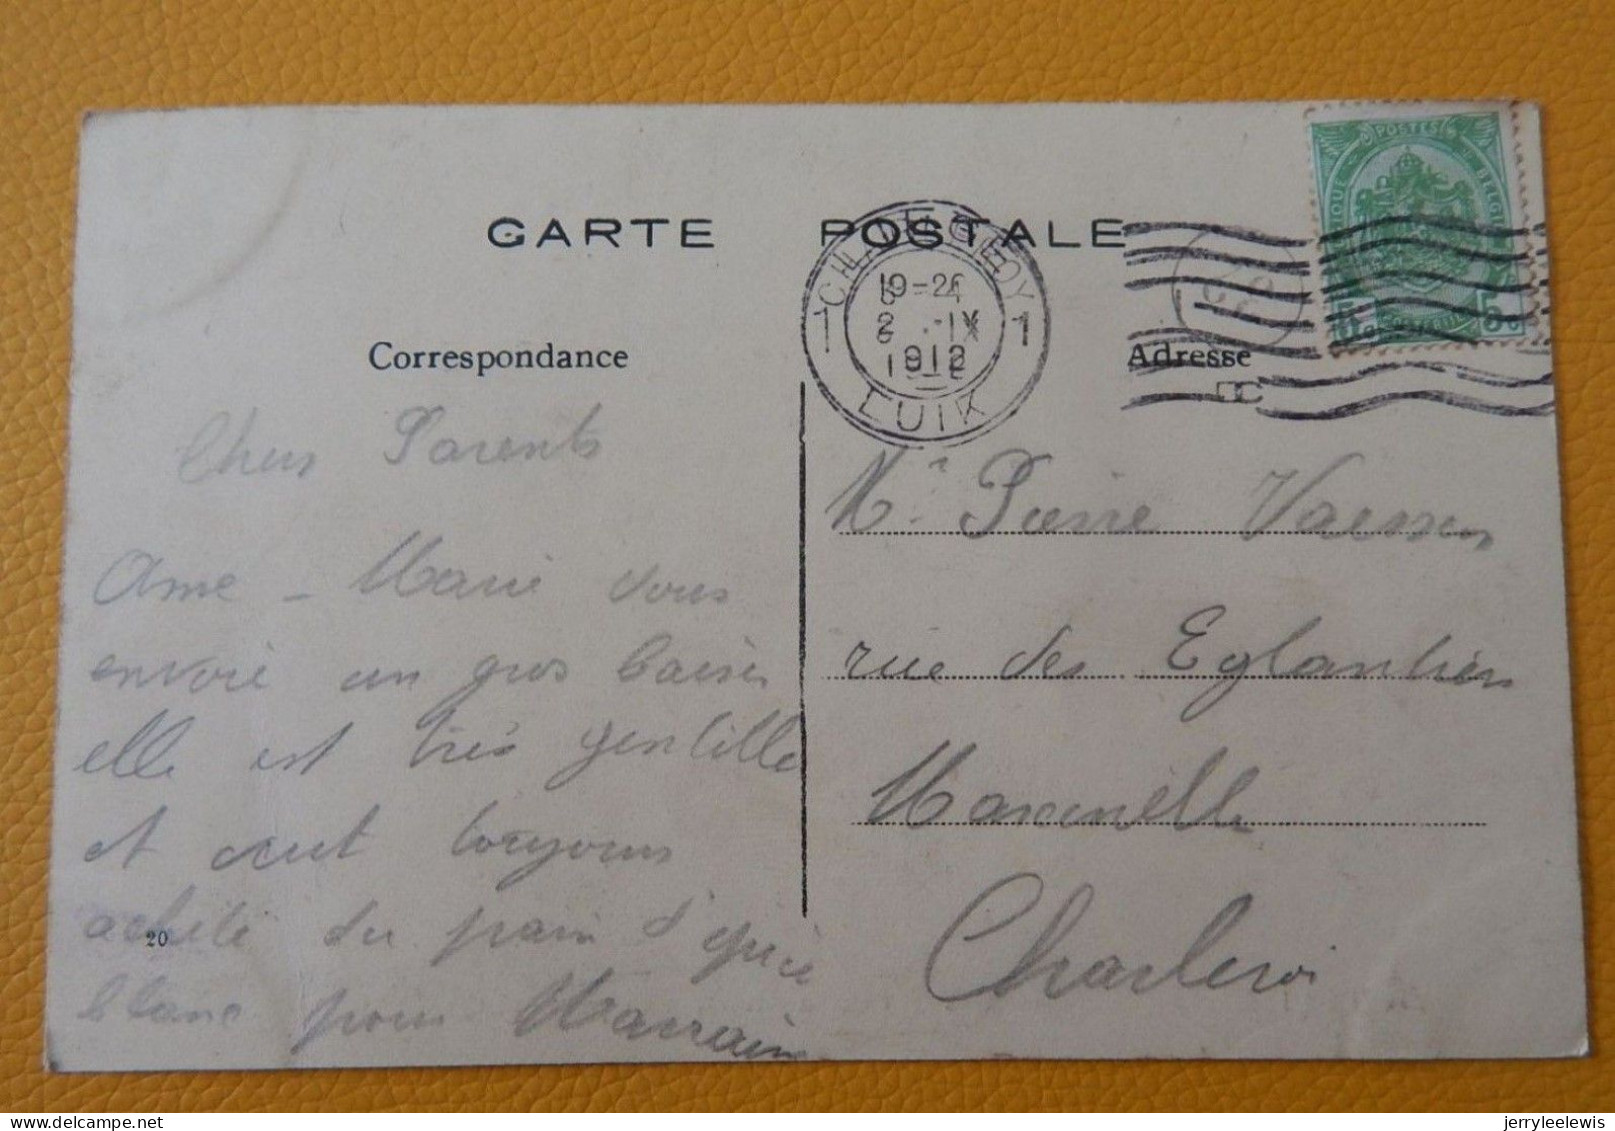 CARTE POSTALE
POSTES
BELGIQUE
5c 5c
1 CHARLEROY 1
19-20
2 - IX
1912
LUIK
Correspondance
Adresse
Chers Parents
Anne - Marie vous
envoie un gros baiser
elle est très gentille
et veut toujours
acheté du pain d'épice
blanc pour Marraine
20
Mr. Pierre Vaessen
rue des Eglantiers
Marcinelle
Charleroi
jerryleelewis